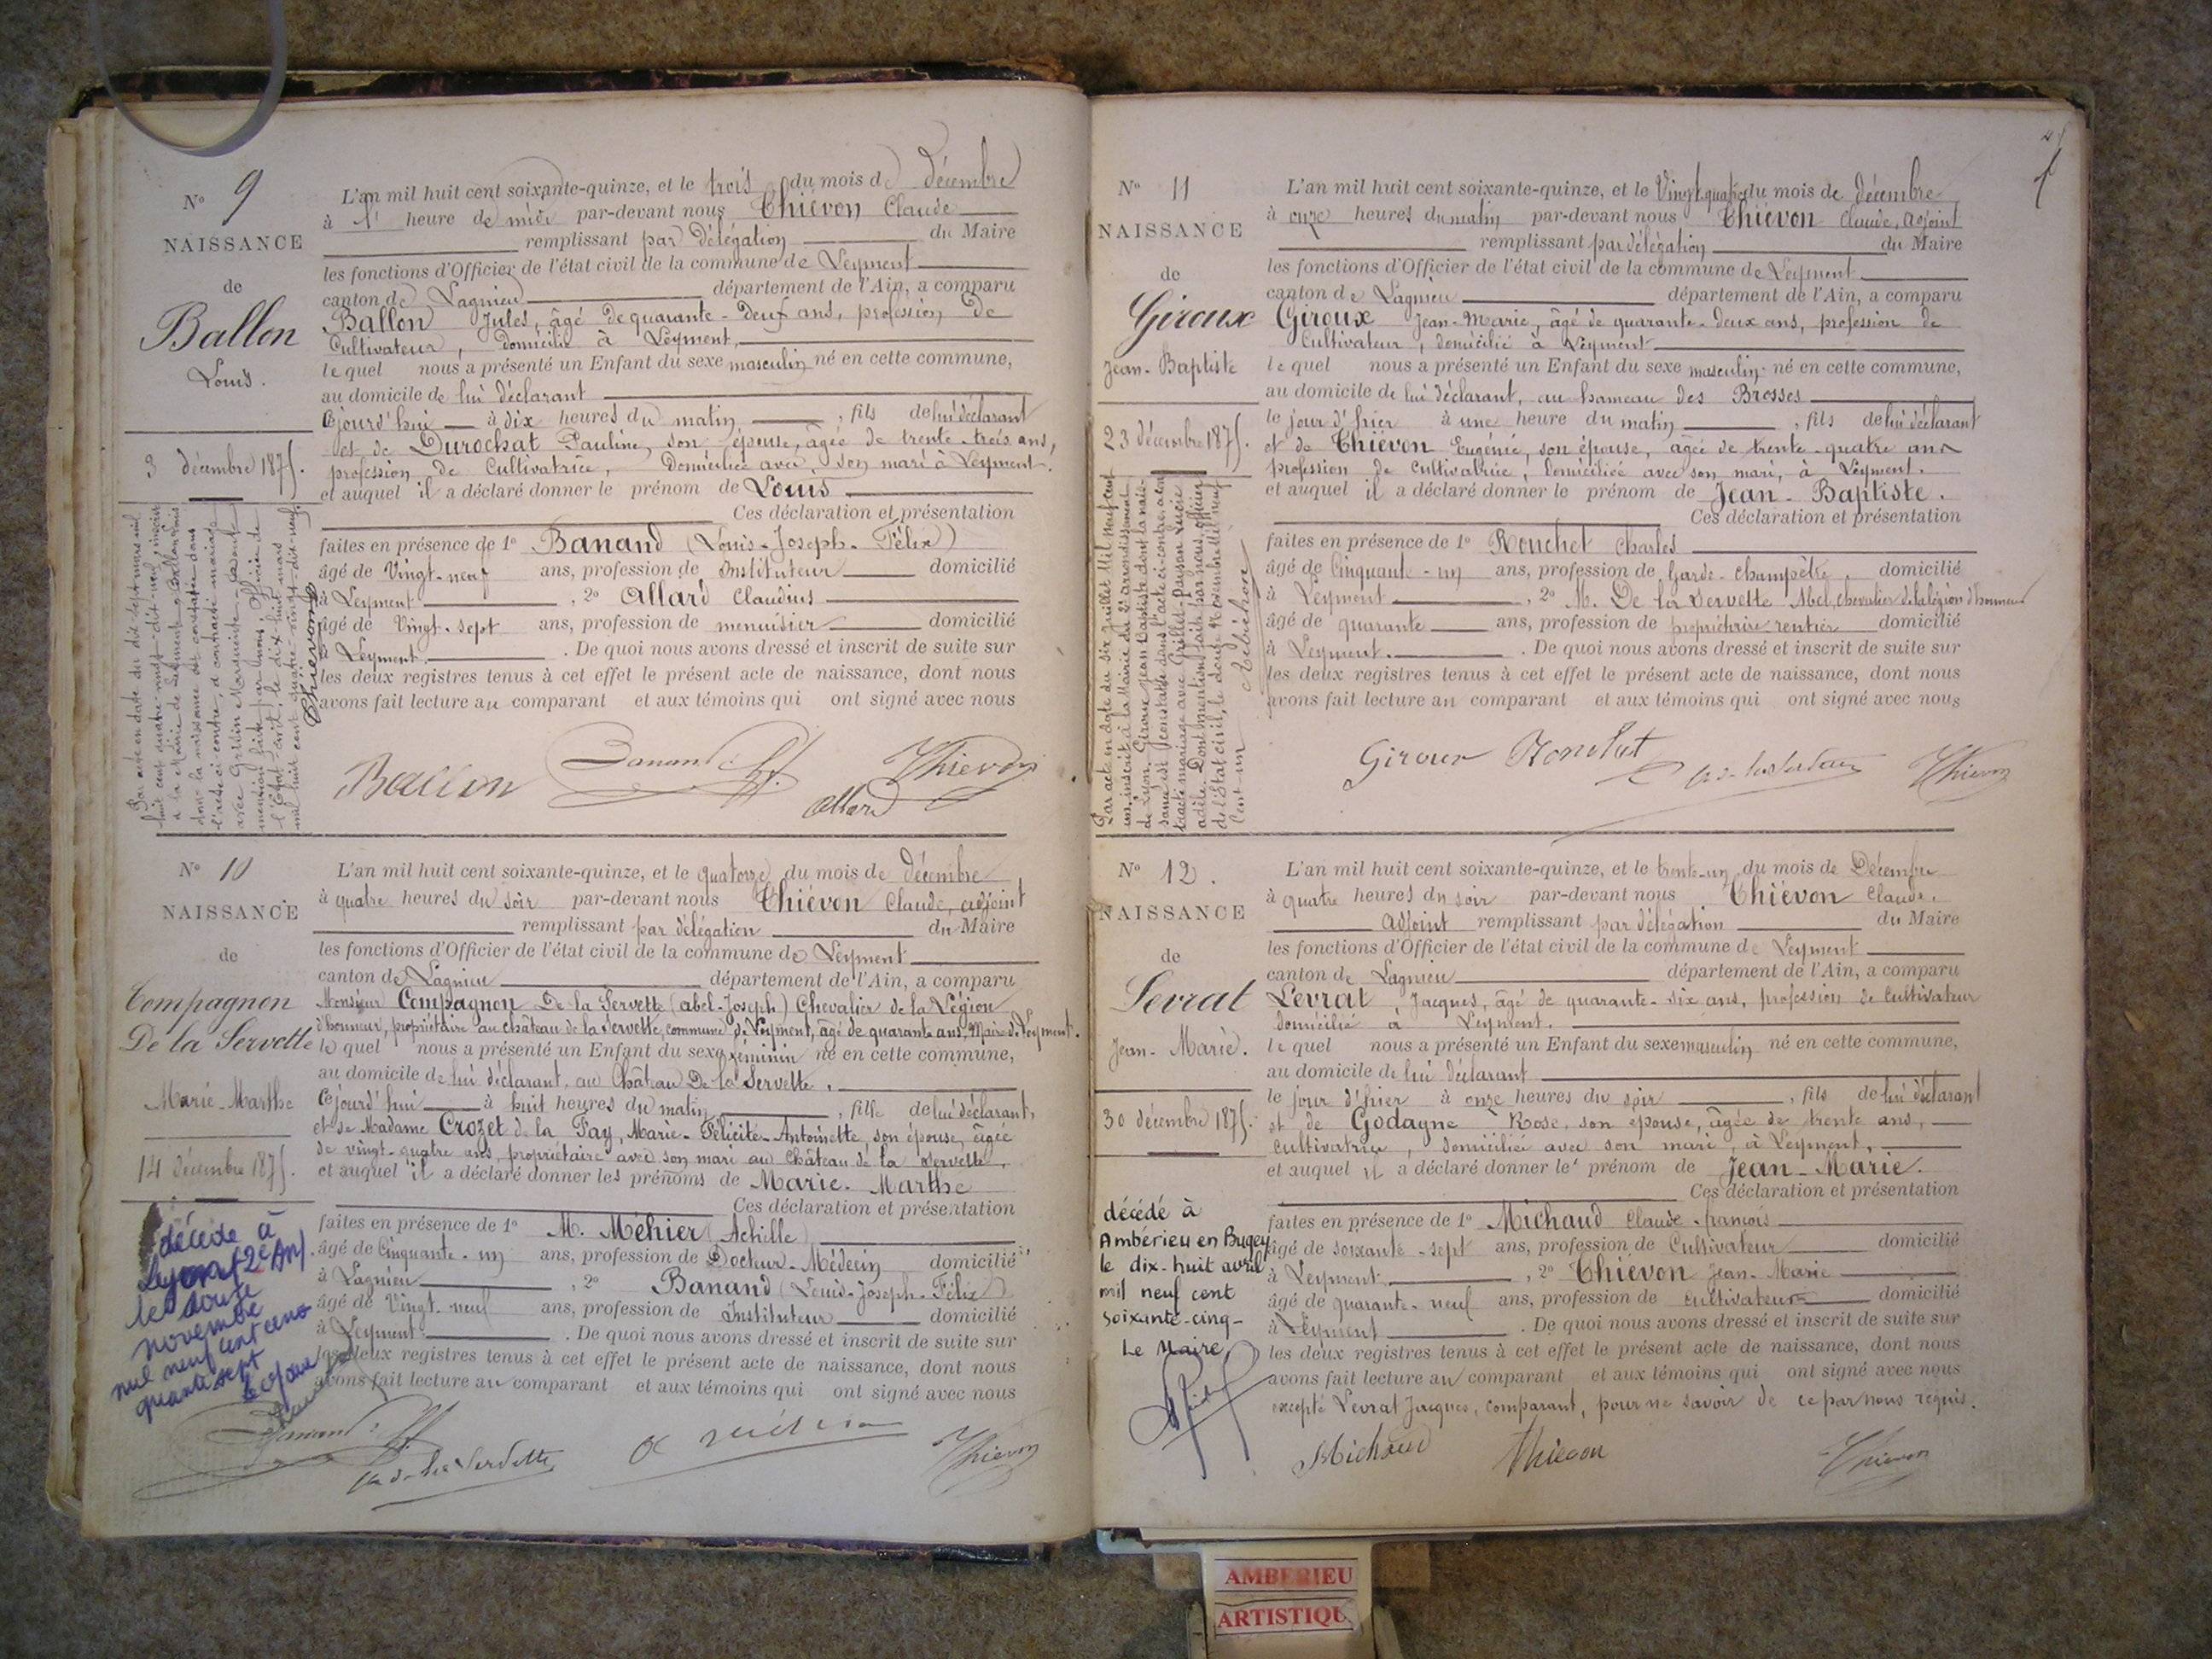 N° 9
NAISSANCE
de
Ballon
Louis.
3 décembre 1875.
L'an mil huit cent soixante-quinze, et le trois du mois de décembre
à 1 heure de midi par-devant nous Thiévon Claude
remplissant par délégation du Maire
les fonctions d'Officier de l'état civil de la commune de Leyment
canton de Lagnieu département de l'Ain, a comparu
Ballon Jules, âgé de quarante-deux ans, profession de
Cultivateur, domicilié à Leyment,
lequel nous a présenté un Enfant du sexe masculin né en cette commune,
au domicile de lui déclarant
Cejourd'hui à dix heures du matin, fils de lui déclarant
et de Durochat Pauline, son épouse, âgée de trente-trois ans,
profession de Cultivatrice, domiciliée avec son mari à Leyment.
et auquel il a déclaré donner le prénom de Louis
Ces déclaration et présentation
faites en présence de 1° Banand (Louis-Joseph-Félix)
âgé de Vingt-neuf ans, profession de Instituteur domicilié
à Leyment, 2° Allard Claudius
âgé de Vingt-sept ans, profession de menuisier domicilié
à Leyment. De quoi nous avons dressé et inscrit de suite sur
les deux registres tenus à cet effet le présent acte de naissance, dont nous
avons fait lecture au comparant et aux témoins qui ont signé avec nous
Ballon Banand Allard Thievon
N° 10
NAISSANCE
de
Compagnon
De la Servette
Marie-Marthe
14 décembre 1875.
décédée à
Lyon (2e Arr)
le douze
novembre
mil neuf cent cin
quante sept
L'an mil huit cent soixante-quinze, et le quatorze du mois de décembre
à quatre heures du soir par-devant nous Thiévon Claude, adjoint
remplissant par délégation du Maire
les fonctions d'Officier de l'état civil de la commune de Leyment
canton de Lagnieu département de l'Ain, a comparu
Monsieur Compagnon De la Servette (abel-Joseph) Chevalier de la Légion
d'honneur, propriétaire au château de la Servette, commune de Leyment, âgé de quarante ans, Maire de Leyment.
lequel nous a présenté un Enfant du sexe féminin né en cette commune,
au domicile de lui déclarant, au Château De la Servette,
Cejourd'hui à huit heures du matin, fille de lui déclarant,
et de Madame Crozet de la Fay, Marie-Félicité-Antoinette, son épouse, âgée
de vingt-quatre ans, propriétaire avec son mari au Château de la Servette,
et auquel il a déclaré donner les prénoms de Marie-Marthe
Ces déclaration et présentation
faites en présence de 1° M. Méhier (Achille)
âgé de Cinquante-un ans, profession de Docteur-Médecin domicilié
à Lagnieu, 2° Banand (Louis-Joseph-Félix)
âgé de Vingt-neuf ans, profession de Instituteur domicilié
à Leyment. De quoi nous avons dressé et inscrit de suite sur
les deux registres tenus à cet effet le présent acte de naissance, dont nous
avons fait lecture au comparant et aux témoins qui ont signé avec nous
Banand de la Servette Méhier Thievon
N° 11
NAISSANCE
de
Giroux
Jean-Baptiste
23 décembre 1875.
L'an mil huit cent soixante-quinze, et le Vingt quatre du mois de décembre
à onze heures du matin par-devant nous Thiévon Claude, adjoint
remplissant par délégation du Maire
les fonctions d'Officier de l'état civil de la commune de Leyment
canton de Lagnieu département de l'Ain, a comparu
Giroux Jean-Marie, âgé de quarante-deux ans, profession de
Cultivateur, domicilié à Leyment
lequel nous a présenté un Enfant du sexe masculin né en cette commune,
au domicile de lui déclarant, au hameau des Brosses
le jour d'hier à une heure du matin, fils de lui déclarant
et de Thiévon Eugénie, son épouse, âgée de trente-quatre ans
profession de Cultivatrice, domiciliée avec son mari, à Leyment.
et auquel il a déclaré donner le prénom de Jean-Baptiste.
Ces déclaration et présentation
faites en présence de 1° Ronchet Charles
âgé de Cinquante-un ans, profession de Garde-Champêtre, domicilié
à Leyment, 2° M. De la Servette Abel, chevalier de la légion d'honneur
âgé de quarante ans, profession de propriétaire rentier domicilié
à Leyment. De quoi nous avons dressé et inscrit de suite sur
les deux registres tenus à cet effet le présent acte de naissance, dont nous
avons fait lecture au comparant et aux témoins qui ont signé avec nous
Giroux Ronchet Thievon
N° 12.
NAISSANCE
de
Levrat
Jean-Marie.
30 décembre 1875.
décédé à
Ambérieu en Bugey
le dix-huit avril
mil neuf cent
soixante-cinq-
Le Maire,
L'an mil huit cent soixante-quinze, et le trente-un du mois de Décembre
à quatre heures du soir par-devant nous Thiévon Claude,
Adjoint remplissant par délégation du Maire
les fonctions d'Officier de l'état civil de la commune de Leyment
canton de Lagnieu département de l'Ain, a comparu
Levrat Jacques, âgé de quarante-six ans, profession de Cultivateur
domicilié à Leyment.
lequel nous a présenté un Enfant du sexe masculin né en cette commune,
au domicile de lui déclarant
le jour d'hier à onze heures du soir, fils de lui déclarant
et de Godagne Rose, son épouse, âgée de trente ans,
cultivatrice, domiciliée avec son mari, à Leyment,
et auquel il a déclaré donner le prénom de Jean-Marie.
Ces déclaration et présentation
faites en présence de 1° Michaud Claude-françois
âgé de soixante-sept ans, profession de Cultivateur domicilié
à Leyment, 2° Thiévon Jean-Marie
âgé de quarante-neuf ans, profession de cultivateur domicilié
à Leyment. De quoi nous avons dressé et inscrit de suite sur
les deux registres tenus à cet effet le présent acte de naissance, dont nous
avons fait lecture au comparant et aux témoins qui ont signé avec nous
excepté Levrat Jacques, comparant, pour ne savoir de ce par nous requis.
Michaud Thievon Thievon
AMBERIEU
ARTISTIQUE